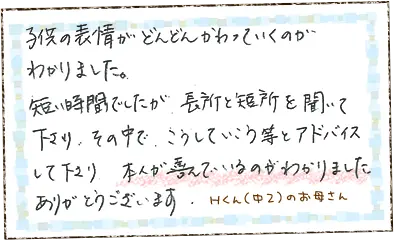 子供の表情がどんどんかわっていくのが
わかりました。
短い時間でしたが、長所と短所を聞いて
下さり、その中で、こうしていこう等とアドバイス
して下さり 本人が喜んでいるのがわかりました
ありがとうございます. Hくん(中2)のお母さん